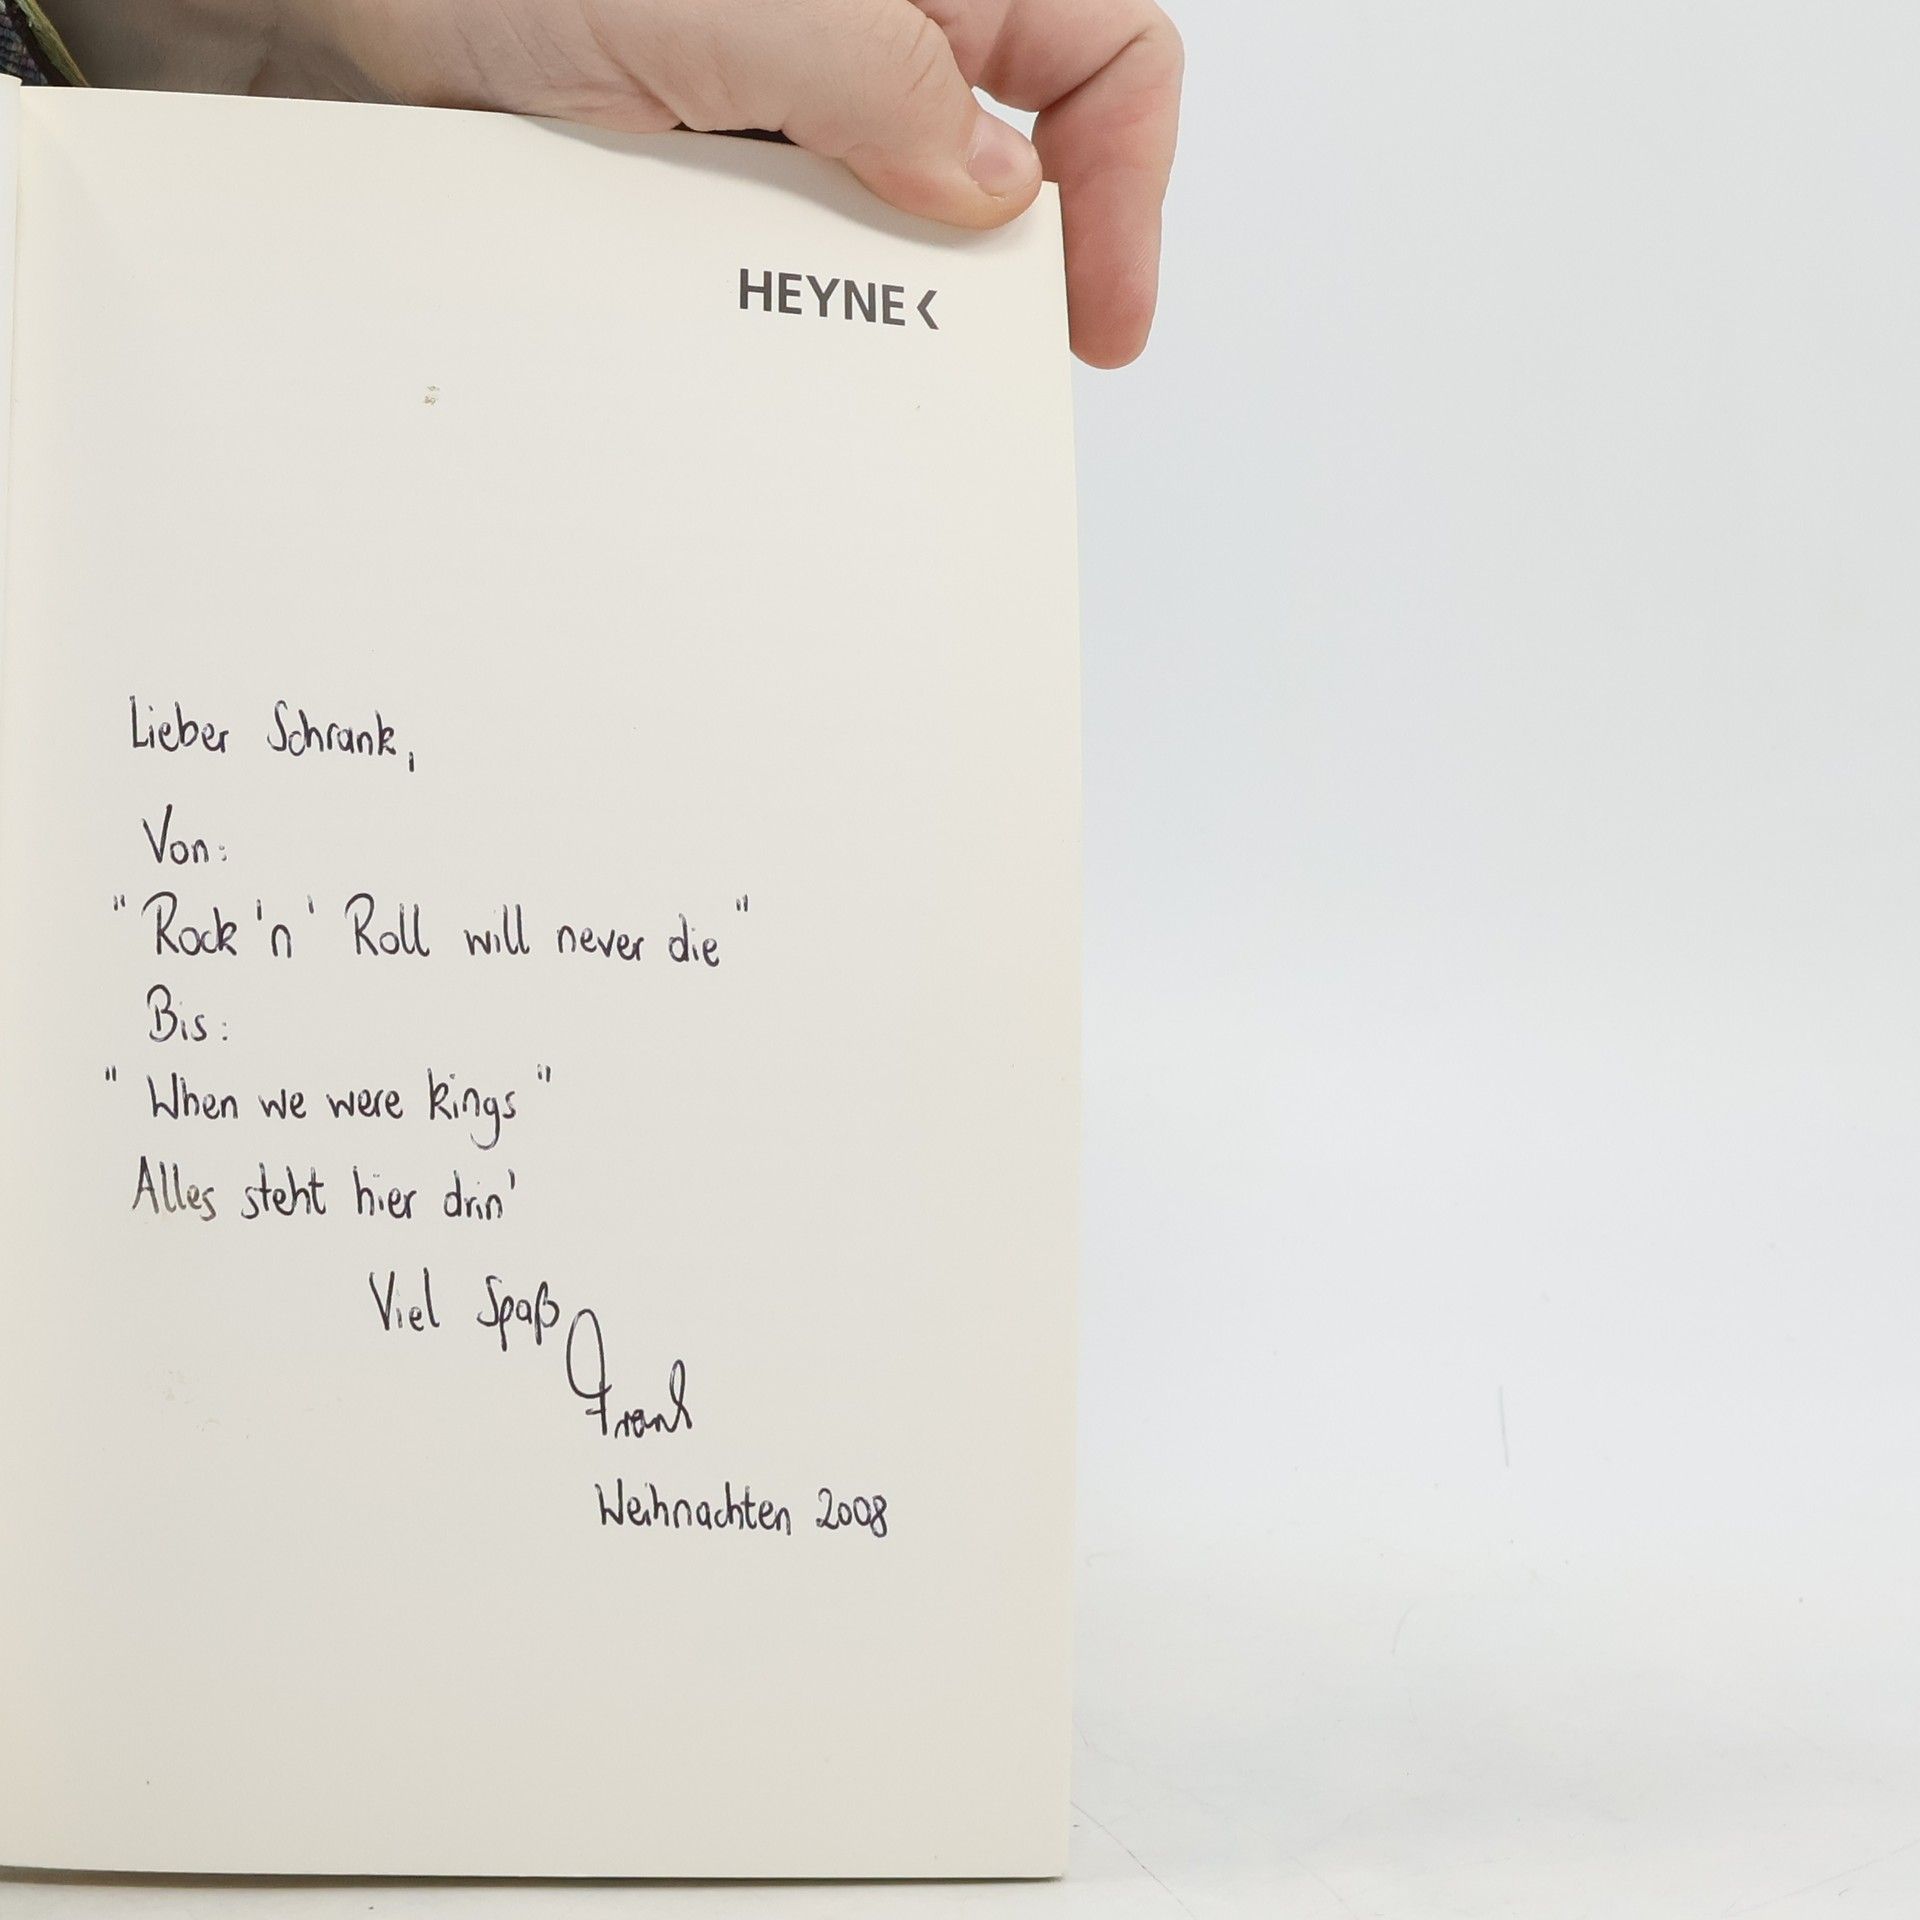 HEYNE<
Lieber Schrank,
Von:
"Rock 'n' Roll will never die"
Bis:
"When we were kings"
Alles steht hier drin'
Viel Spaß
Frank
Weihnachten 2008